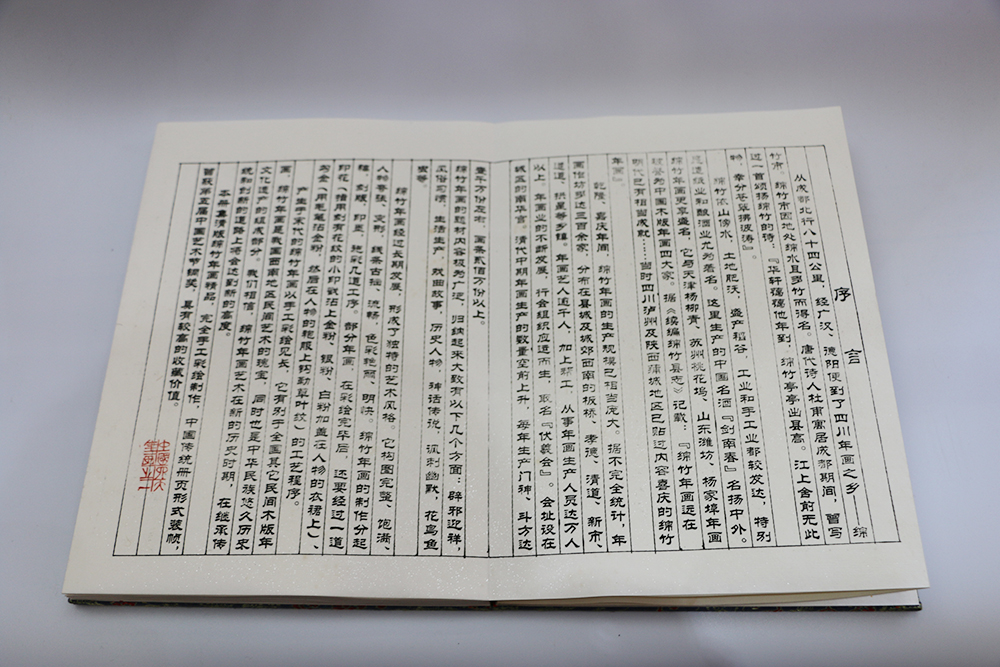 序言
从成都北行八十四公里，经广汉、德阳便到了四川年画之乡——绵
竹市。绵竹市因地处绵水且多竹而得名。唐代诗人杜甫寓居成都期间，曾写
过一首颂扬绵竹的诗：『华轩蔼蔼他年到，绵竹亭亭出县高。江上舍前无此
物，幸分苍翠拂波涛』。
绵竹依山傍水，土地肥沃，盛产稻谷，工业和手工业都较发达，特别
是造纸业和酿酒业尤为著名。这里生产的中国名酒『剑南春』名扬中外。
绵竹年画更享盛名，它与天津杨柳青、苏州桃花坞、山东潍坊、杨家埠年画
被誉为中国木版年画四大家。据《续编绵竹县志》记载：『绵竹年画远在
明代已有相当成就……当时四川泸州及陕西蒲城地区已贴过内容喜庆的绵竹
年画』。
乾隆、嘉庆年间，绵竹年画的生产规模已相当庞大。据不完全统计，年
画作坊多达三百余家，分布在县城及城郊西南的板桥、孝德、清道、新市、
遵道、拱星等乡镇。年画艺人逾千人，加上帮工，从事年画生产人员达万人
以上。年画业的不断发展，行会组织应运而生，取名『伏羲会』。会址设在
城区的南华宫。清代中期年画生产的数量空前上升，每年生产门神、斗方达
壹千万份左右，画条贰佰万份以上。
绵竹年画的题材内容极为广泛，归纳起来大致有以下几个方面：辟邪迎祥，
风俗习惯，生活生产，戏曲故事，历史人物，神话传说，讽刺幽默，花鸟鱼
虫等。
绵竹年画经过长期发展，形成了独特的艺术风格。它构图完整、饱满、
人物夸张、变形，线条古拙、流畅，色彩艳丽、明快。绵竹年画的制作分起
稿，刻版，印墨，施彩几道工序。部分年画，在彩绘完毕后，还要经过一道
印花（憎用刻有花纹的小印戳沾上金粉，银粉，白粉加盖在人物的衣裙上）、
勾金（用毛笔沾金粉，然后在人物的袍服上钩勒草叶纹）的工艺程序。
产生于宋代的绵竹年画以手工彩绘见长，它有别于全国其它民间木版年
画，绵竹年画是我国西南地区民间艺术的瑰宝，同时也是中华民族悠久历史
文化遗产的组成部分。我们相信，绵竹年画艺术在新的历史时期，在继承传
统和创新的道路上将会达到新的高度。
本册集清版绵竹年画精品，完全手工彩绘制作，中国传统册页形式装帧，
曾获第五届中国艺术节铜奖，具有较高的收藏价值。